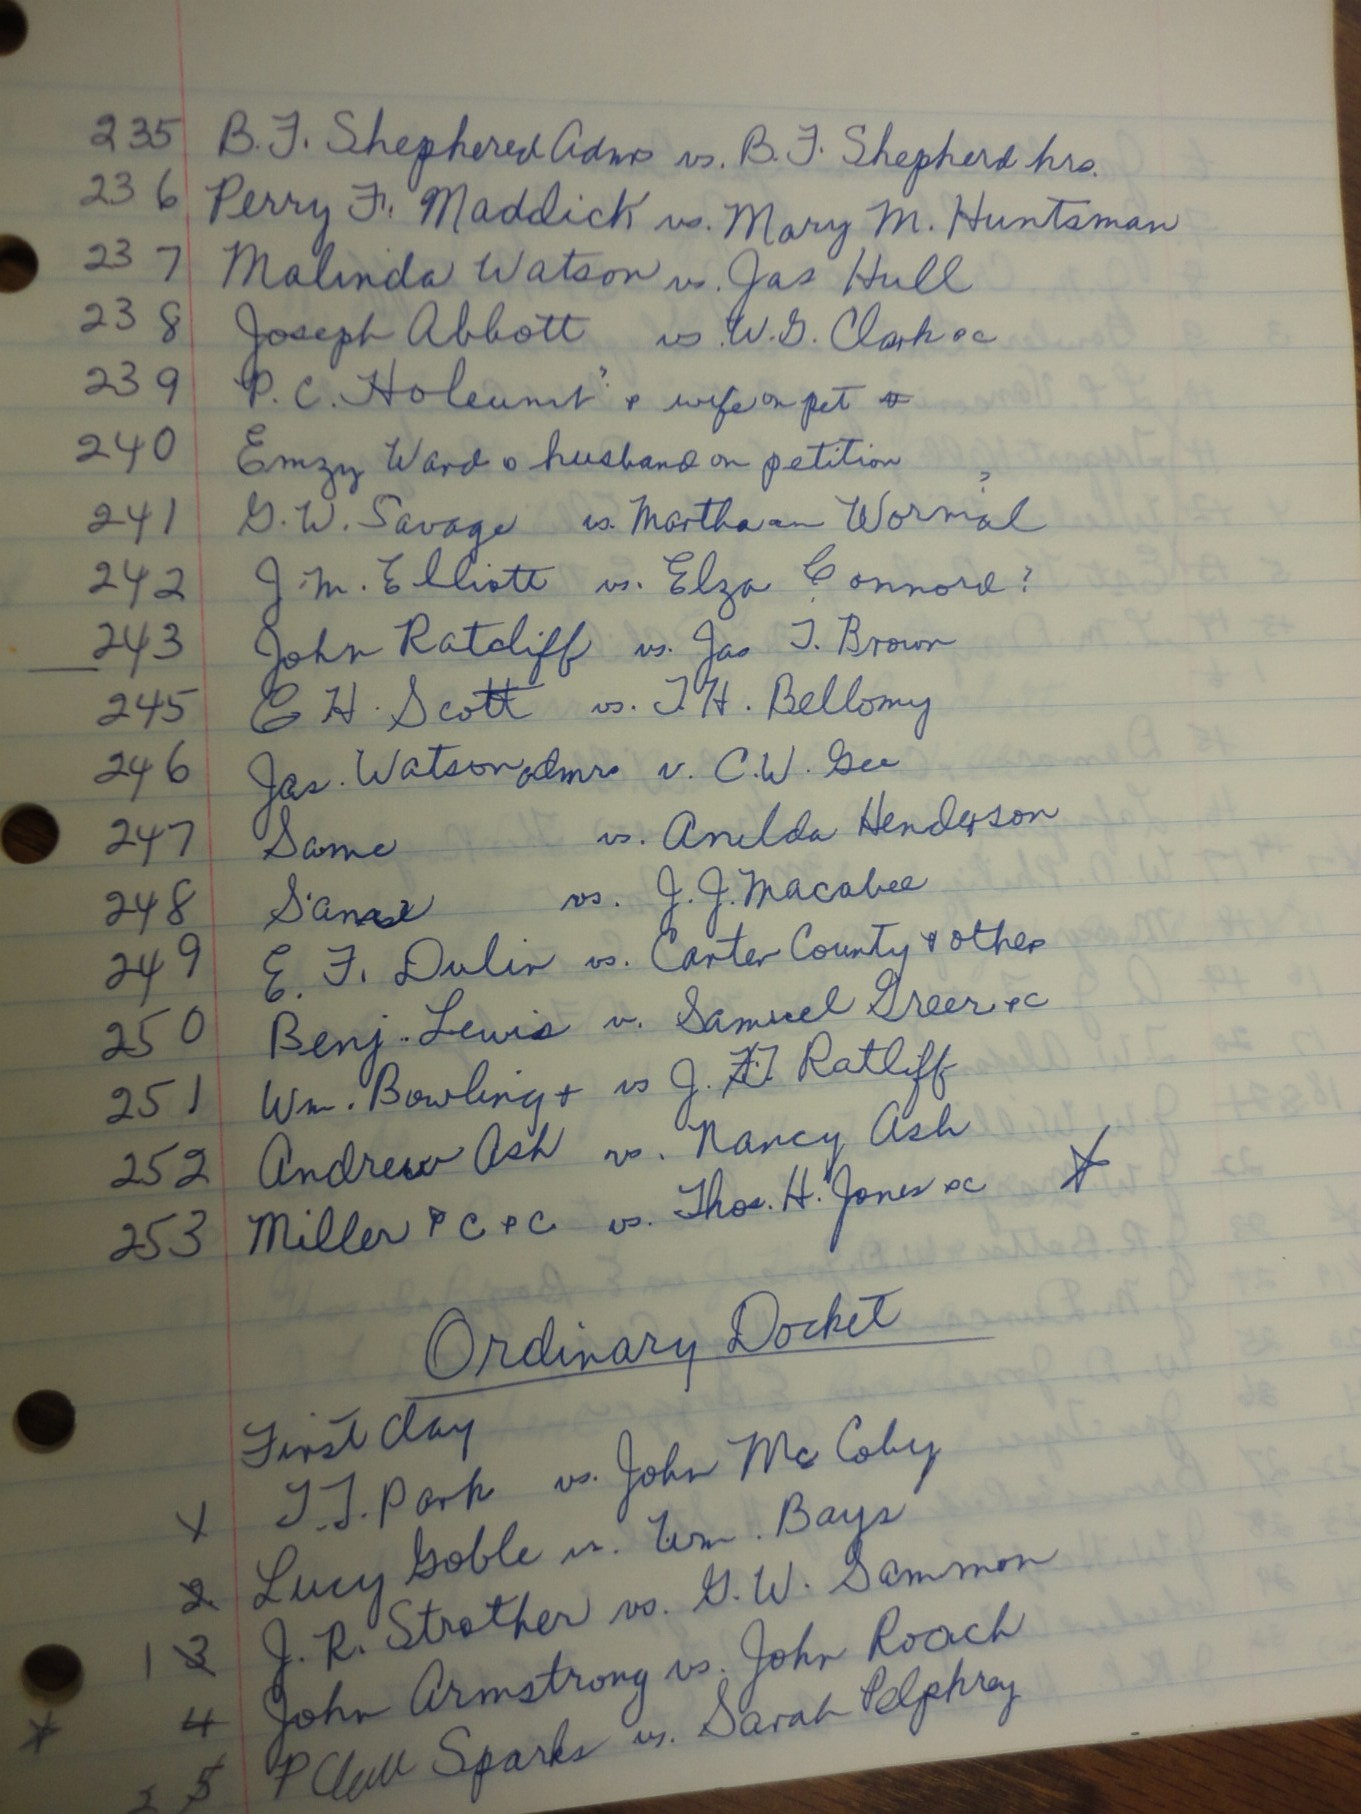 235 B.F. Shephered Admrs vs. B.F. Shepherd hrs.
236 Perry F. Maddick vs. Mary M. Huntsman
237 Malinda Watson vs. Jas Hull
238 Joseph Abbott vs W.G. Clark &c
239 P.C. Holcumt ? & wife on pet
240 Emzy Ward & husband on petition
241 G.W. Savage vs. Martha an Wormal ?
242 J.M. Elliott vs. Elza Connord ?
243 John Ratcliff vs. Jas T. Brown
245 E H. Scott vs. T.H. Bellomy
246 Jas. Watson admrs v. C.W. Gee
247 Same vs. Anelda Henderson
248 Same vs. J.J. Macabee
249 E. F. Dulin vs. Carter County & other
250 Benj. Lewis v. Samuel Greer &c
251 Wm. Bowling + vs J. F. Ratliff
252 Andrew Ash vs. Nancy Ash
253 Miller & C & C vs. Thos. H. Jones &c
Ordinary Docket
First day
1 T.J. Park vs. John McCoby
2 Lucy Goble vs. Wm. Bays
1 3 J. R. Strother vs. G.W. Sammon
4 John Armstrong vs. John Roach
2 5 Sparks vs. Sarah Pelphrey